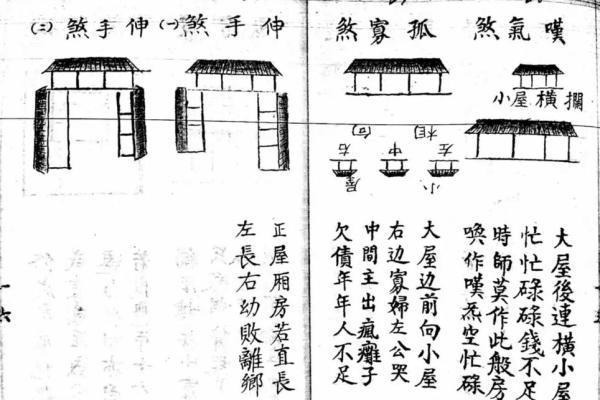 嘆氣煞
小屋橫攔
大屋後連橫小屋
忙忙碌碌錢不足
時師莫作此般房
喚作嘆氣空忙碌
孤寡煞
左中右
小屋
相向
大屋边前向小屋
右边寡婦左公哭
中間主出瘋癱子
欠債年年人不足
伸手煞㈠
正屋厢房若直長
左長右幼敗離鄉
伸手煞㈡
一六